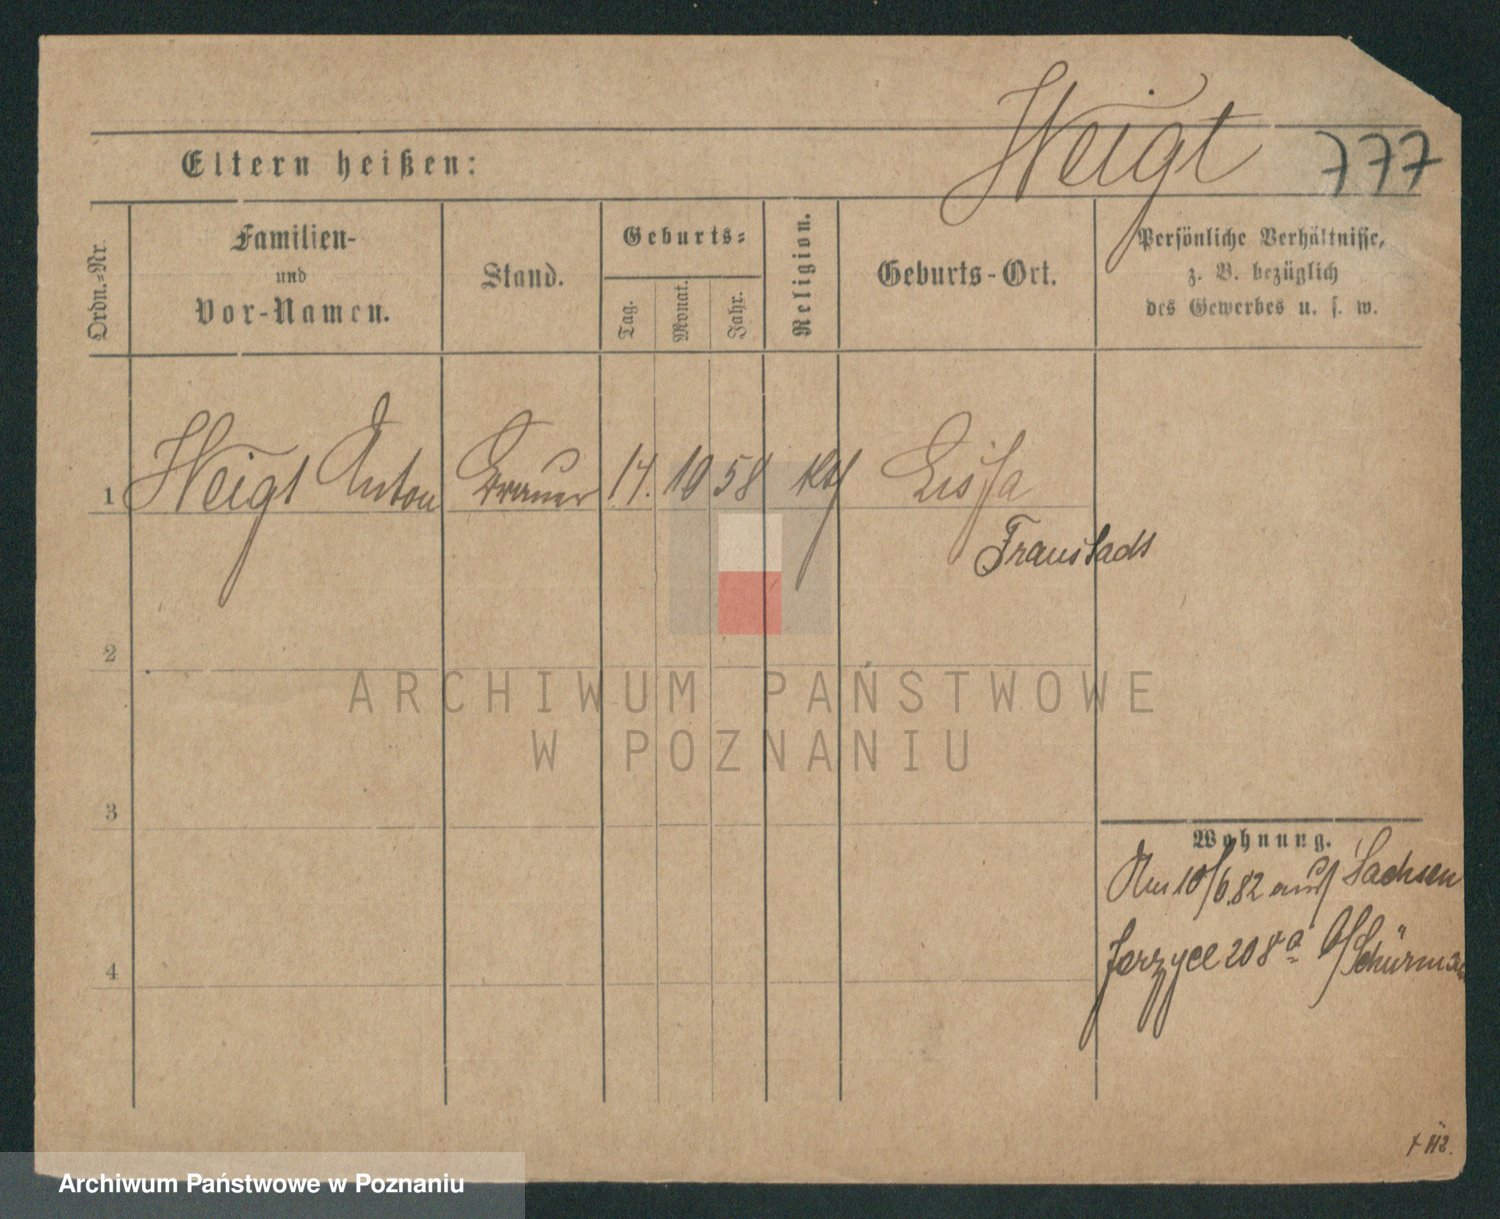 Weigt 777
Eltern heißen:
Ordn.-Nr.
Familien-
und
Vor-Namen.
Stand.
Geburts-
Tag.
Monat.
Jahr.
Religion.
Geburts-Ort.
Persönliche Verhältnisse,
z. B. bezüglich
des Gewerbes u. s. w.
1 Weigt Anton Brauer 14. 10 58 kth Lissa
Fraustadt
2
ARCHIWUM PAŃSTWOWE
W POZNANIU
3
Wohnung.
Am 10/6.82 auf Sachsen
208a
4
Archiwum Państwowe w Poznaniu